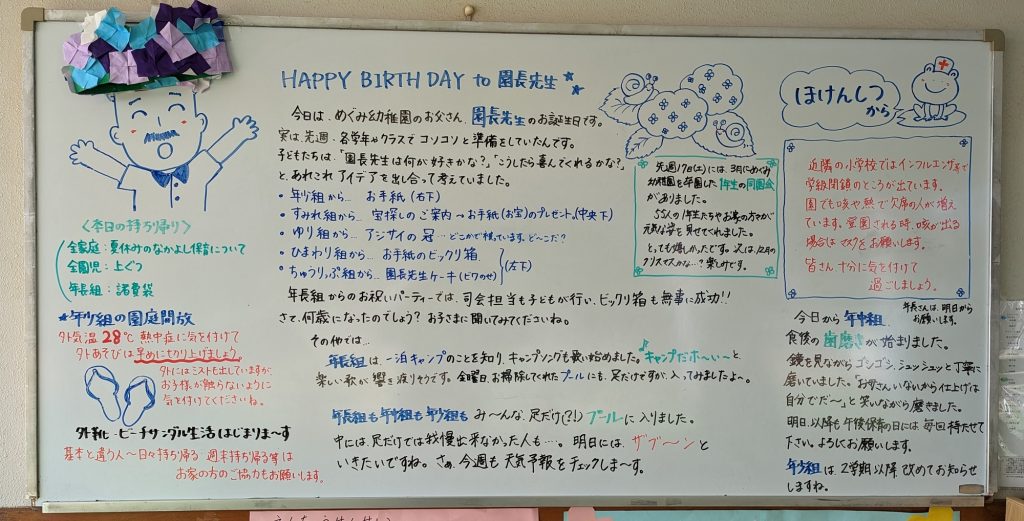 HAPPY BIRTHDAY to 園長先生
今日は、めぐみ幼稚園のお父さん、園長先生のお誕生日です。
実は、先週、各学年やクラスでコソコソと準備をしていたんです。
子どもたちは、「園長先生は何が好きかな?」「こうしたら喜んでくれるかな?」
と、あれこれアイデアを出し合って考えていました。
・年少組から… お手紙(右下)
・すみれ組から… 宝探しのご案内→お手紙(お宝)のプレゼント(中央下)
・ゆり組から… アジサイの冠…どこかで様っています。ど〜こだ?
・ひまわり組から… お手紙のビックリ箱
・ちゅうりっぷ組から… 園長先生ケーキ(ビワのせ)
(左下)
年長組からのお祝いパーティーでは、司会担当も子どもが行い、ビックリ箱も無事に成功!!
さて、何歳になったのでしょう? お子さまに聞いてみてくださいね。
その他では…
年長組は、一泊キャンプのことを知り、キャンプソングも歌い始めました。♪キャンプだホ〜い〜と
楽しい歌が響き渡りそうです。金曜日、お掃除してくれたプールにも、足だけですが、入ってみましたよ〜。
年長組も年中組も年少組も み〜んな、足だけ(?!) プールに入りました。
中には、足だけでは我慢出来なかった人も…。明日には、ザブ〜ンと
いきたいですね。さぁ、今週も天気予報をチェックしま〜す。
<本日の持ち帰り>
全家庭:夏休みのなかよし保育について
全園児:上ぐつ
年長組:諸費袋
★年少組の園庭開放
外気温28℃ 熱中症に気を付けて
外あそびは早めに切り上げましょう
外にはミストも出していますが、
お子様が触らないように
気を付けてくださいね。
外靴→ビーチサンダル生活はじまりま〜す
基本と違う人〜日々持ち帰る・週末持ち帰る等は
お家の方のご協力もお願いします。
先週17日(土)には、3月にめぐみ
幼稚園を卒園した1年生の同園会
がありました。
55人の1年生たちやお家の方々が
元気な姿を見せてくれました。
とっても嬉しかったです。次は、12月の
クリスマスかな…?楽しみです。
ほけんしつ
から
近隣の小学校ではインフルエンザ等で
学級閉鎖のところが出ています。
園でも咳や熱で欠席の人が増え
ています。登園される時、咳が出る
場合はマスクをお願いします。
皆さん十分に気を付けて
過ごしましょう。
年長さんは、明日から
お願いします。
今日から年中組、
食後の歯磨きが始まりました。
鏡を見ながらゴシゴシ、シュッシュッと丁寧に
磨いていました。「お母さんいないから仕上げは
自分でだ〜」と笑いながら磨きました。
明日以降も午後保育の日には毎回持たせて
下さい。ようにお願いします。
年少組は、2学期以降、改めてお知らせ
しますね。